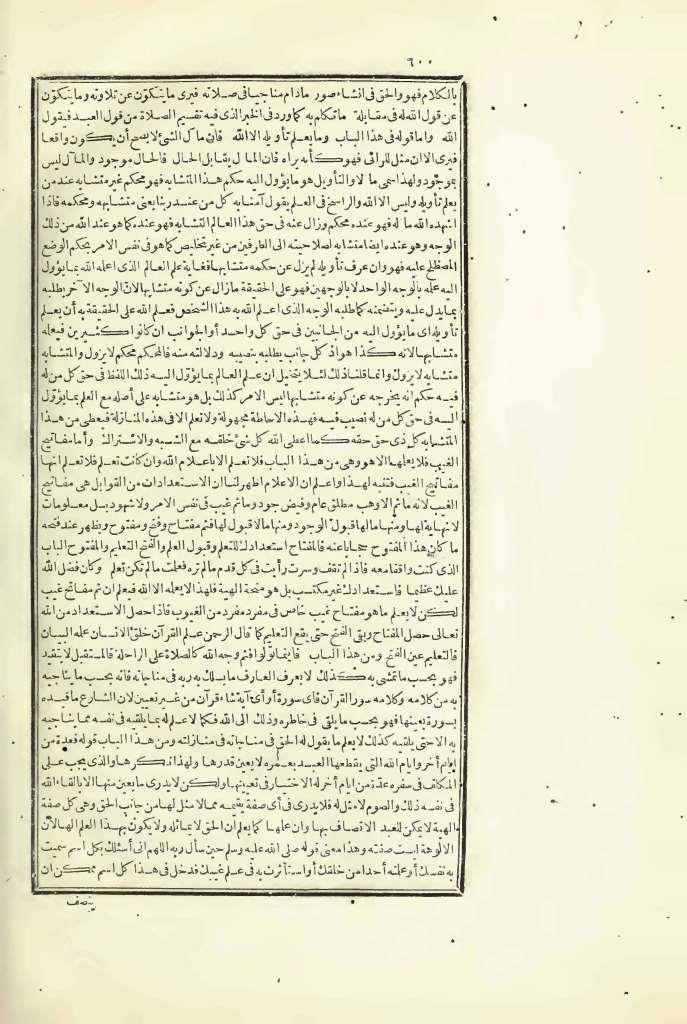 ٦٠٠
بالكلام فهو والحق فى انشاء صور مادام مناجيا فى صلاته فيرى ما يتكوّن عن تلاوته وما يتكوّن
عن قول الله له فى مقابلة ما تكلم به كما ورد فى الخبر الذى فيه تقسيم الصلاة من قول العبد فيقول
الله واما قوله فى هذا الباب وما يعلم تأويله الا الله فان مآل الشئ لا يصح أن يكون واقعا
فيرى الا ان مثل للرائى فهو كأنه يراه فان المآل يقابل الحال فالحال موجود والمآل ليس
بموجود ولهذا سمى مآلا والتأويل هو ما يؤول اليه حكم هذا المتشابه فهو محكم غير متشابه عند من
يعلم تأويله وليس الا الله والراسخ فى العلم يقول آمنا به كل من عند ربنا يعنى متشابهه ومحكمه فاذا
اشهده الله مآله فهو عنده محكم وزال عنه فى حق هذا العالم التشابه فهو عنده كما هو عند الله من ذلك
الوجه وهو عنده ايضا متشابه لصلاحيته الى الطرفين من غير تخليص كما هو فى نفس الامر بحكم الوضع
المصطلح عليه فهو وان عرف تأويله لم يزل عن حكمه متشابها فغاية علم العالم الذى اعلمه الله بما يؤول
اليه علمه بالوجه الواحد لا بالوجهين فهو على الحقيقة ما زال عن كونه متشابها لان الوجه الآخر يطلبه
بما يدل عليه ويتضمنه كما طلبه الوجه الذى اعلم الله به هذا الشخص فعلم الله على الحقيقة به أن يعلم
تأويله اى ما يؤول اليه من الجانبين فى حق كل واحد أو الجوانب ان كانوا كثيرين فيعلمه
متشابها لانه كذا هو اذ كل جانب يطلبه بنصيبه ودلالته منه فالمحكم محكم لا يزول والمتشابه
متشابه لا يزول وانما قلنا ذلك لئلا يتخيل ان علم العالم بما يؤول اليه ذلك اللفظ فى حق كل من له
فيه حكم انه يخرجه عن كونه متشابها ليس الامر كذلك بل هو متشابه على أصله مع العلم بما يؤول
اليه فى حق كل من له نصيب فيه فهذه الاحاطة مجهولة ولا تعلم الا فى هذه المنازلة فيعطى من هذا
المتشابه كل ذى حق حقه كما اعطى الله كل شئ خلقه مع الشبه والاشتراك وأما مفاتيح
الغيب فلا يعلمها الا هو وهى من هذا الباب فلا تعلم الا باعلام الله وان كانت تعلم فلا تعلم انها
مفاتيح الغيب فتنبه لهذا واعلم ان الاعلام اظهر لنا ان الاستعدادات من القوابل هى مفاتيح
الغيب لانه ما ثم الا وهب مطلق عام وفيض جود وما ثم غيب فى نفس الامر ولا شهود بل معلومات
لا نهاية لها ومنها ما لها قبول الوجود ومنها ما لا قبول لها فثم مفتاح وفتح ومفتوح ويظهر عند فتحه
ما كان هذا المفتوح حجابا عنه فالمفتاح استعدادك للتعلم وقبول العلم والفتح التعليم والمفتوح الباب
الذى كنت واقفا معه فاذا لم تقف وسرت رأيت فى كل قدم ما لم تره فعلمت ما لم تكن تعلم وكان فضل الله
عليك عظيما فاستعدادك غير مكتسب بل هو منحة الهية فلهذا لا يعلمه الا الله فيعلم ان ثم مفاتح غيب
لكن لا يعلم ما هو مفتاح غيب خاص فى مفرد مفرد من الغيوب فاذا حصل الاستعداد من الله
تعالى حصل المفتاح وبقى الفتح حتى يقع التعليم كما قال الرحمن علم القرآن خلق الانسان علمه البيان
فالتعليم عين الفتح ومن هذا الباب فأينما تولوا فثم وجه الله كالصلاة على الراحلة فالمستقبل لا يتقيد
فهو بحسب ما تمشى به كذلك لا يعرف العارف ما يسلك به ربه فى مناجاته فانه بحسب ما يناجيه
به من كلامه وكلامه سور القرآن فاى سورة أو أى آية شاء قرآن من غير تعيين لان الشارع ما قيده
بسورة بعينها فهو بحسب ما يلقى فى خاطره وذلك الى الله فكما لا علم له بما يلقيه فى نفسه مما يناجيه
به الا حتى يلقيه كذلك لا يعلم ما يقول له الحق فى مناجاته فى منازلته ومن هذا الباب قوله فعدة من
ايام أخر وايام الله التى يقطعها العبد بعمره لا يعين قدرها ولهذا نكرها والذى يجب على
المكلف فى سفره عدّة من ايام أخر له الاختيار فى تعيينها ولكن لا يدرى ما يعين منها الا بالقاء الله
فى نفسه ذلك والصوم لا مثل له فلا يدرى فى أى صفة يقيمه مما لا مثل لها من جانب الحق وهى كل صفة
الهية لا يمكن للعبد الاتصاف بها وان علمها كما يعلم ان الحق لا يماثله ولا يكون بهذا العلم الها لأن
الالوهة ليست صفته وهذا معنى قوله صلى الله عليه وسلم حين سأل ربه اللهم انى أسئلك بكل اسم سميت
به نفسك أو علمته أحدا من خلقك أو استأثرت به فى علم غيبك فدخل فى هذا كل اسم ممكن ان
يتصف